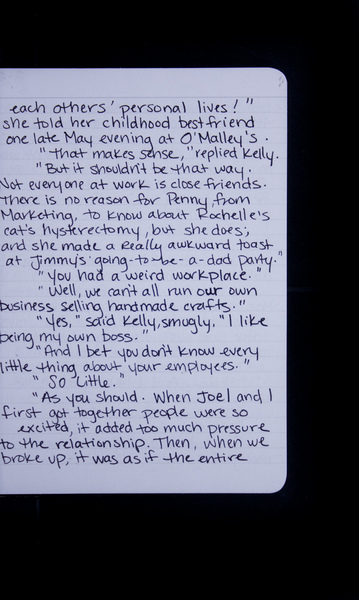 each others' personal lives!"
she told her childhood best friend
one late May evening at O'Malley's.
"That makes sense," replied Kelly.
"But it shouldn't be that way.
Not everyone at work is close friends.
There is no reason for Penny, from
Marketing, to know about Rochelle's
cat's hysterectomy, but she does;
and she made a really awkward toast
at Jimmy's going-to-be-a-dad party."
"You had a weird workplace."
"Well, we can't all run our own
business selling handmade crafts."
"Yes," said Kelly, smugly. "I like
being my own boss."
"And I bet you don't know every
little thing about your employees."
"So little."
"As you should. When Joel and I
first got together people were so
excited, it added too much pressure
to the relationship. Then, when we
broke up, it was as if the entire